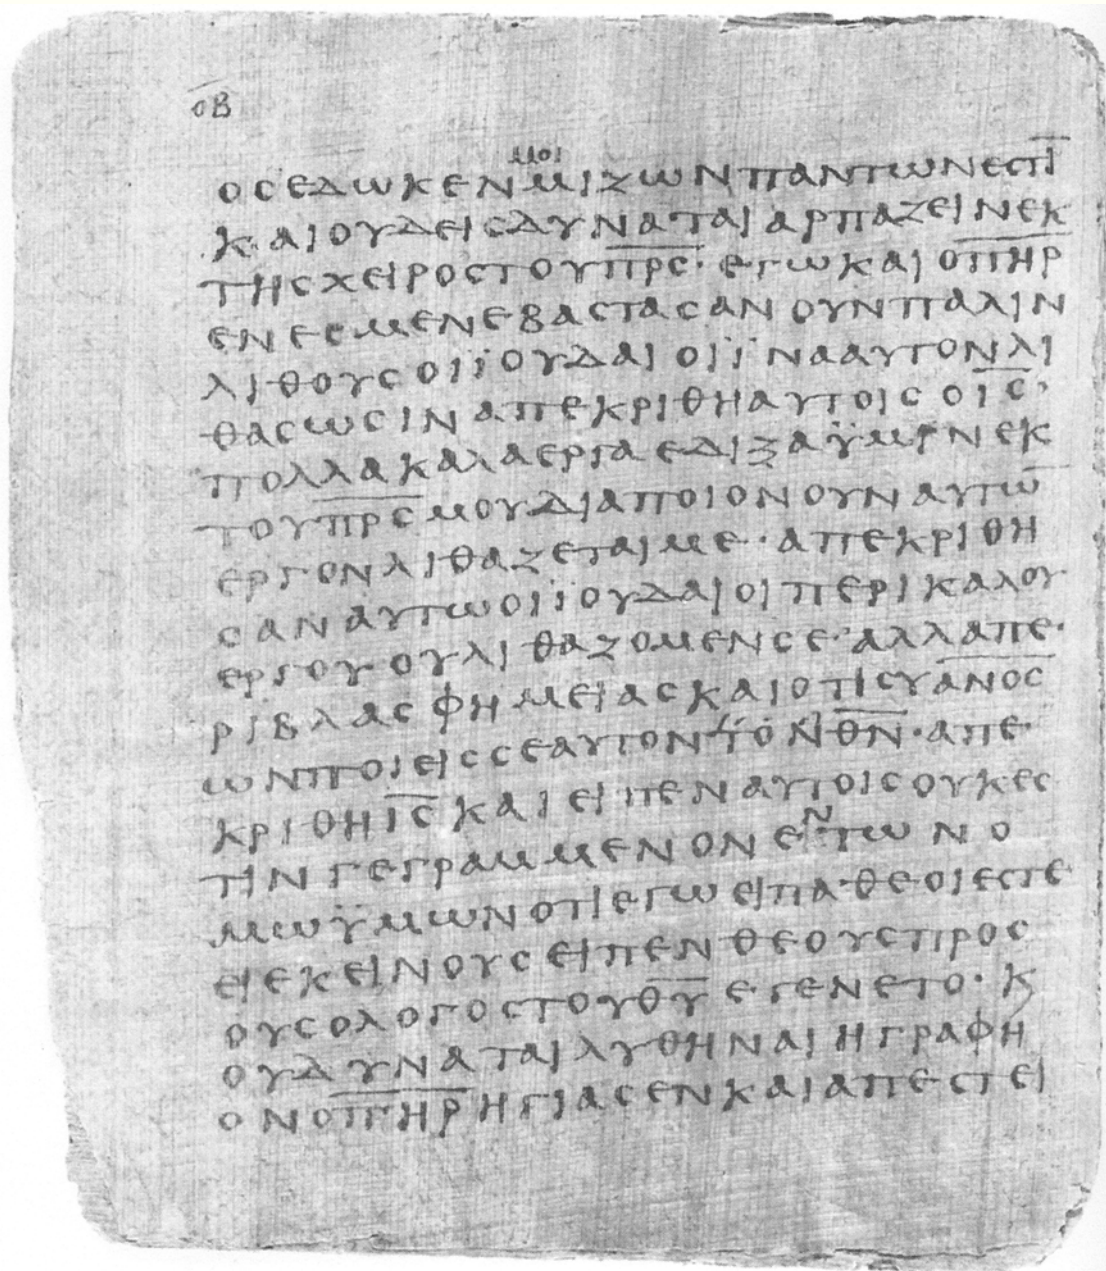 οβ
μοι
οσεδωκενμιζωνπαντωνεστι̅
καιουδεισδυναταιαρπαζεινεκ
τησχειροστουπ̅ρ̅σ̅· εγωκαιοπ̅η̅ρ̅
ενεσμενεβαστασανουνπαλιν
λιθουσοιϊουδαιοιϊνααυτονλι
θασωσιναπεκριθηαυτοισοι̅σ̅·
πολλακαλαεργαεδιξαϋμινεκ
τουπ̅ρ̅σ̅μουδιαποιονουναυτω̅
εργονλιθαζεταιμε· απεκριθη
σαναυτωοιϊουδαιοιπερικαλου
εργουουλιθαζομενσε· αλλαπε·
ριβλασφημειασκαιοτισυα̅ν̅ο̅σ̅
ωνποιεισσεαυτοντονθ̅ν̅· απε·
κριθηι̅σ̅καιειπεναυτοισουκεσ
τινγεγραμμενονεντωνο
μωϋμωνοτιεγωειπα·θεοιεστε
ειεκεινουσειπενθεουσπροσ
ουσολογοστουθ̅υ̅εγενετο· κ
ουδυναταιλυθηναιηγραφη
ονοπ̅η̅ρ̅ηγιασενκαιαπεστει